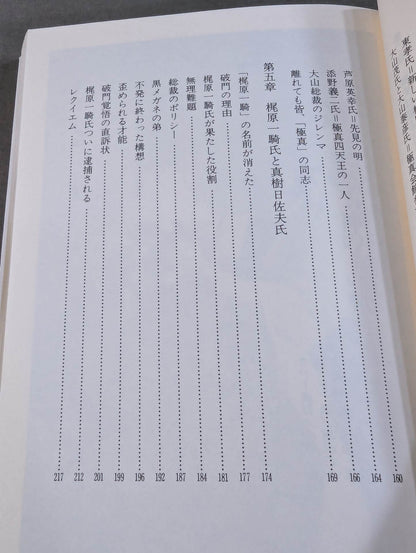 東孝氏＝新し
大山茂氏と大山泰彦氏＝極真会
芦原英幸氏＝先見の明 160
添野義二氏＝極真四天王の一人 164
大山総裁のジレンマ 166
離れても皆、「極真」の同志 169
第五章　梶原一騎氏と真樹日佐夫氏
「梶原一騎」の名前が消えた 174
破門の理由 177
梶原一騎氏が果たした役割 181
無理難題 184
総裁のポリシー 187
黒メガネの弟 192
不発に終わった構想 196
歪められる才能 199
破門覚悟の直訴状 201
梶原一騎氏ついに逮捕される 212
レクイエム 217